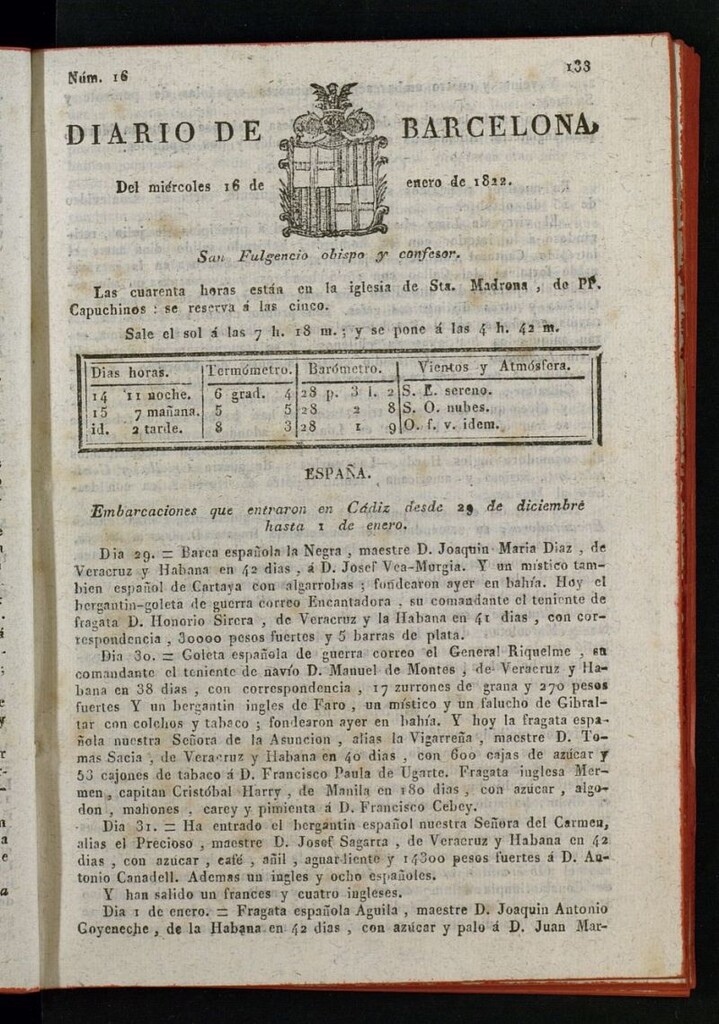 Núm. 16
133
DIARIO DE BARCELONA,
Del miércoles 16 de enero de 1822.
San Fulgencio obispo y confesor.
Las cuarenta horas están en la iglesia de Sta. Madrona, de PP.
Capuchinos: se reserva á las cinco.
Sale el sol á las 7 h. 18 m.; y se pone á las 4 h. 42 m.
Dias horas. Termómetro. Barómetro. Vientos y Atmósfera.
14 11 noche. 6 grad. 4 28 p. 3 l. 2 S. E. sereno.
15 7 mañana. 5 5 28 2 8 S. O. nubes.
id. 2 tarde. 8 3 28 1 9 O. f. v. idem.
ESPAÑA.
Embarcaciones que entraron en Cádiz desde 29 de diciembre
hasta 1 de enero.
Dia 29. = Barca española la Negra, maestre D. Joaquin Maria Diaz, de
Veracruz y Habana en 42 dias, á D. Josef Vea-Murgia. Y un místico tam-
bien español de Cartaya con algarrobas; fondearon ayer en bahía. Hoy el
bergantin-goleta de guerra correo Encantadora, su comandante el teniente de
fragata D. Honorio Sirera, de Veracruz y la Habana en 41 dias, con cor-
respondencia, 30000 pesos fuertes y 5 barras de plata.
Dia 30. = Goleta española de guerra correo el General Riquelme, su
comandante el teniente de navío D. Manuel de Montes, de Veracruz y Ha-
bana en 38 dias, con correspondencia, 17 zurrones de grana y 270 pesos
fuertes Y un bergantin ingles de Faro, un místico y un falucho de Gibral-
tar con colchos y tabaco; fondearon ayer en bahía. Y hoy la fragata espa-
ñola nuestra Señora de la Asuncion, alias la Vigarreña, maestre D. To-
mas Sacia, de Veracruz y Habana en 40 dias, con 600 cajas de azúcar y
53 cajones de tabaco á D. Francisco Paula de Ugarte. Fragata inglesa Mer-
men, capitan Cristóbal Harry, de Manila en 180 dias, con azúcar, algo-
don, mahones, carey y pimienta á D. Francisco Cebey.
Dia 31. = Ha entrado el bergantin español nuestra Señora del Carmen,
alias el Precioso, maestre D. Josef Sagarra, de Veracruz y Habana en 42
dias, con azúcar, café, añil, aguardiente y 14300 pesos fuertes á D. An-
tonio Canadell. Ademas un ingles y ocho españoles.
Y han salido un frances y cuatro ingleses.
Dia 1 de enero. = Fragata española Aguila, maestre D. Joaquin Antonio
Goyeneche, de la Habana en 42 dias, con azúcar y palo á D. Juan Mar-